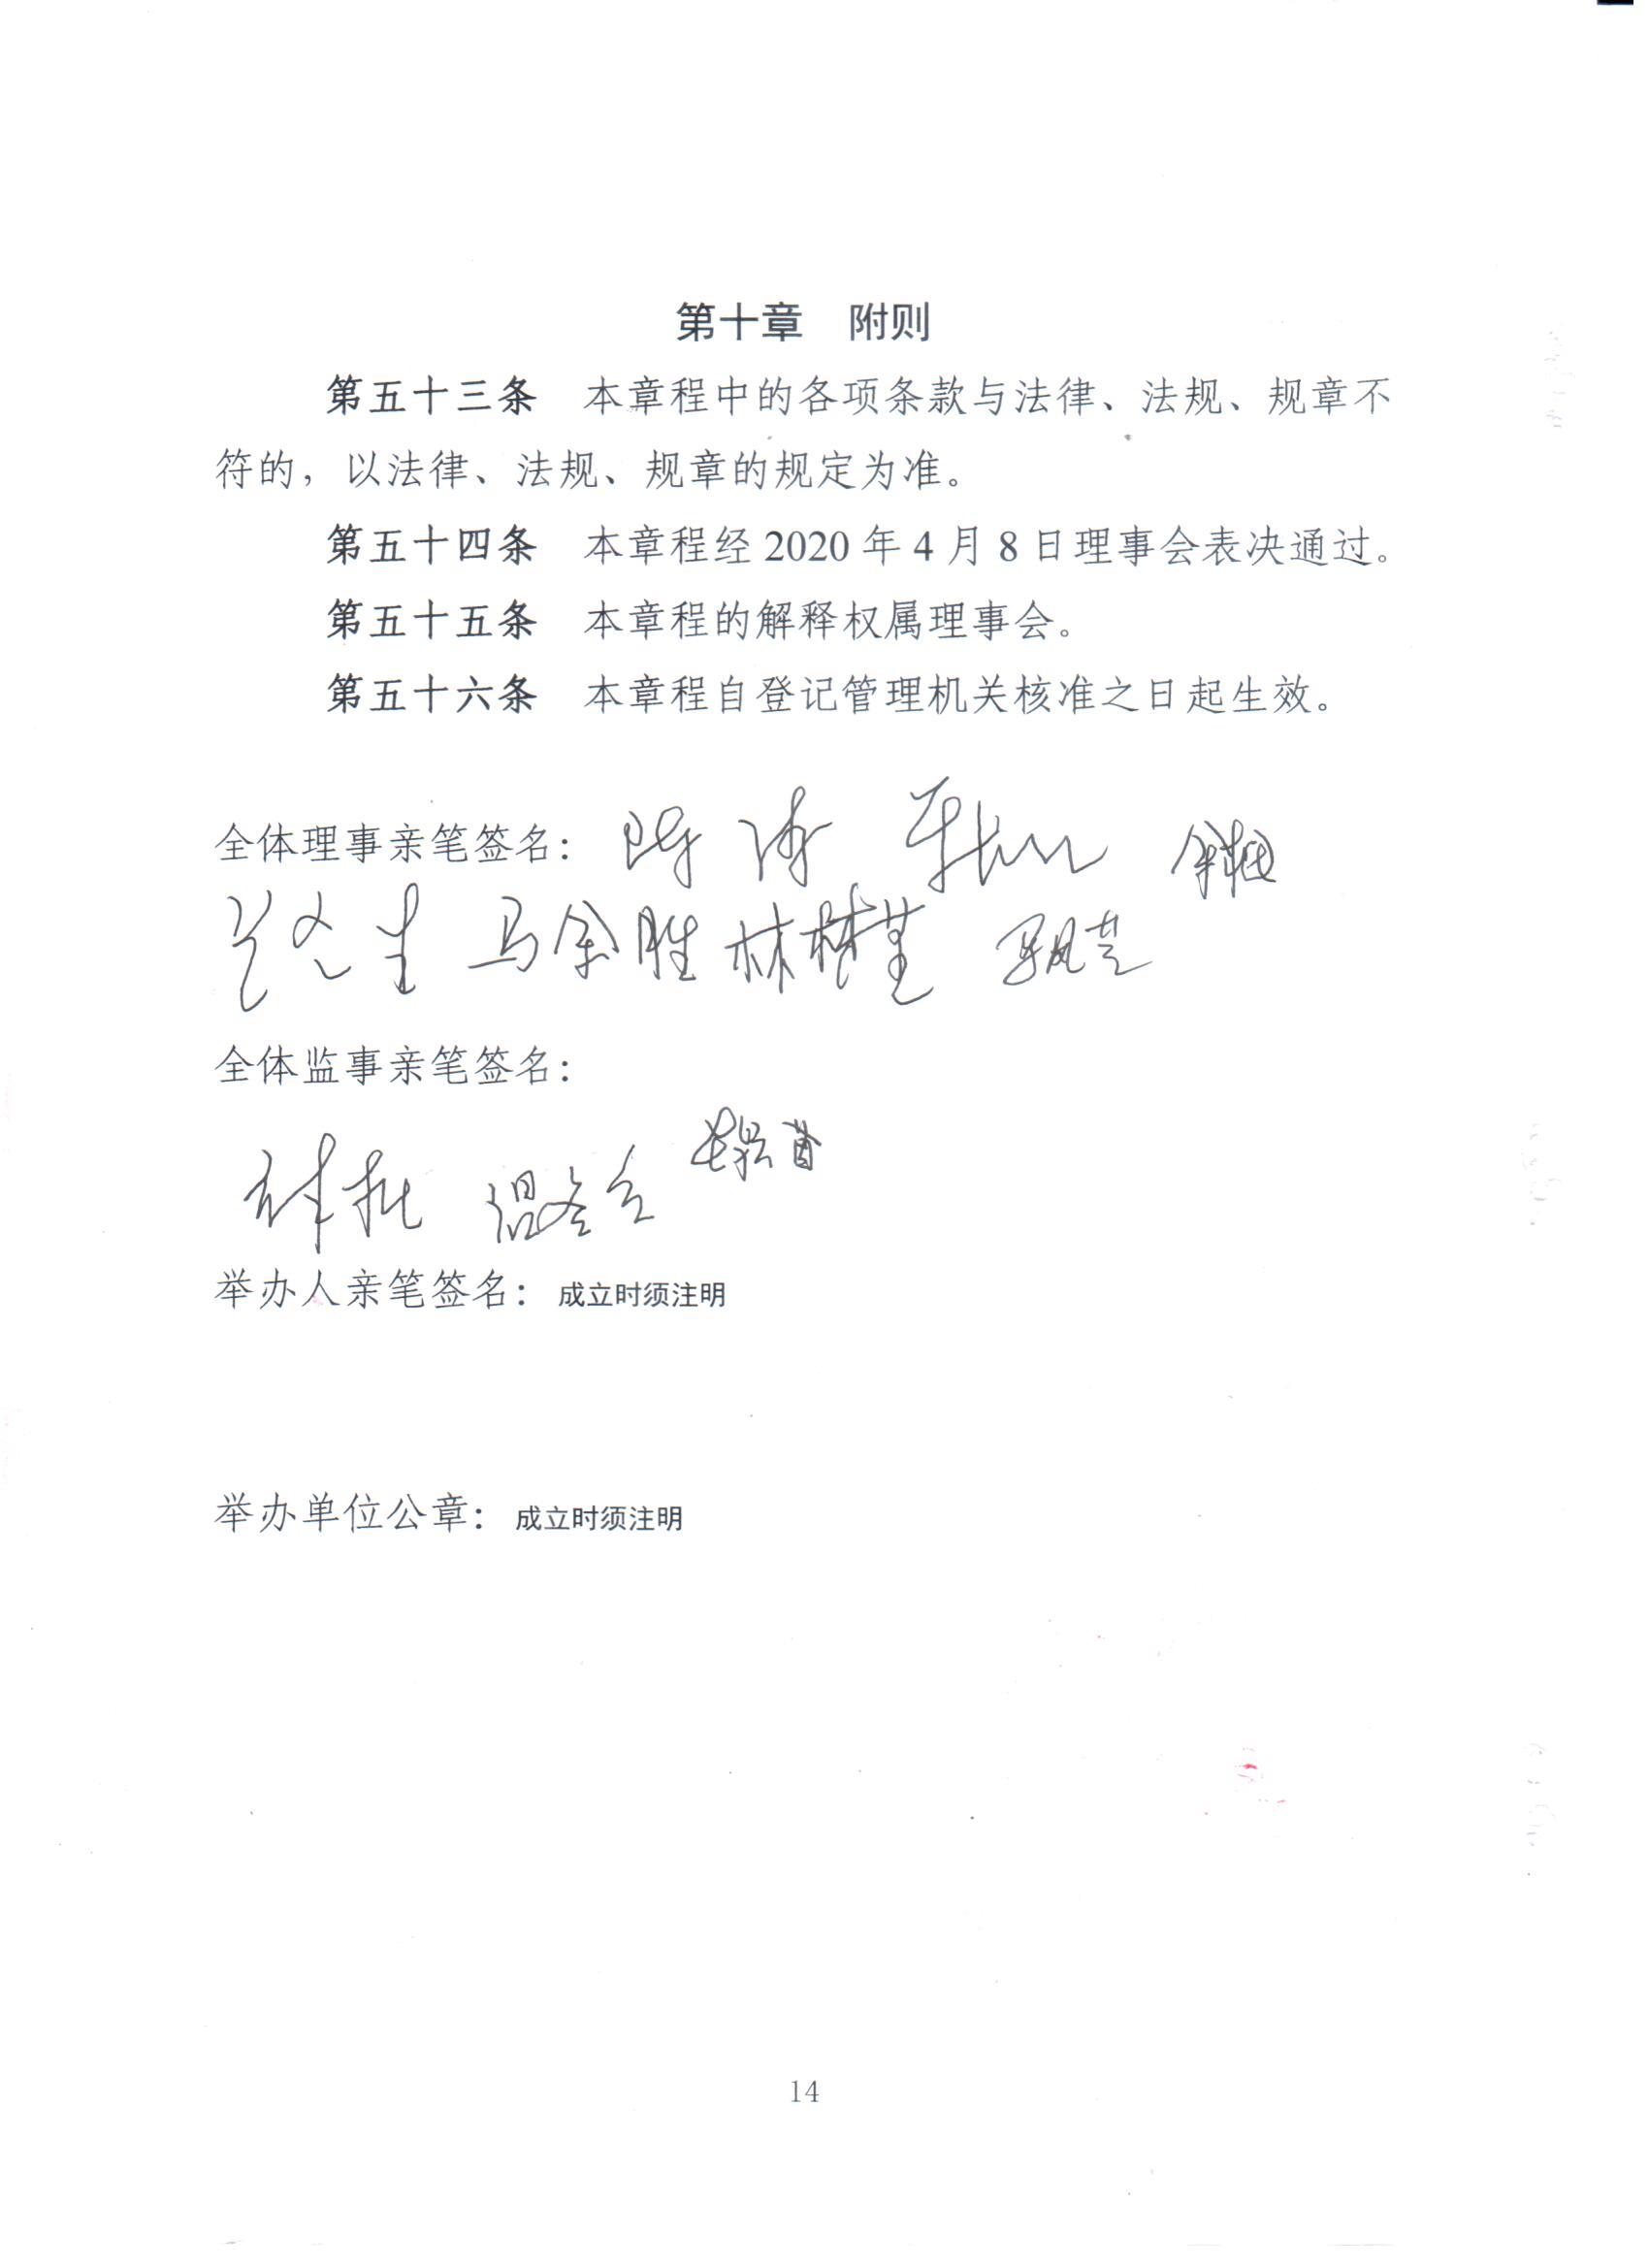 第十章 附则
第五十三条 本章程中的各项条款与法律、法规、规章不
符的，以法律、法规、规章的规定为准。
第五十四条 本章程经 2020 年 4 月 8 日理事会表决通过。
第五十五条 本章程的解释权属理事会。
第五十六条 本章程自登记管理机关核准之日起生效。
全体理事亲笔签名： 陈涛
马金胜
全体监事亲笔签名：
举办人亲笔签名： 成立时须注明
举办单位公章： 成立时须注明
14